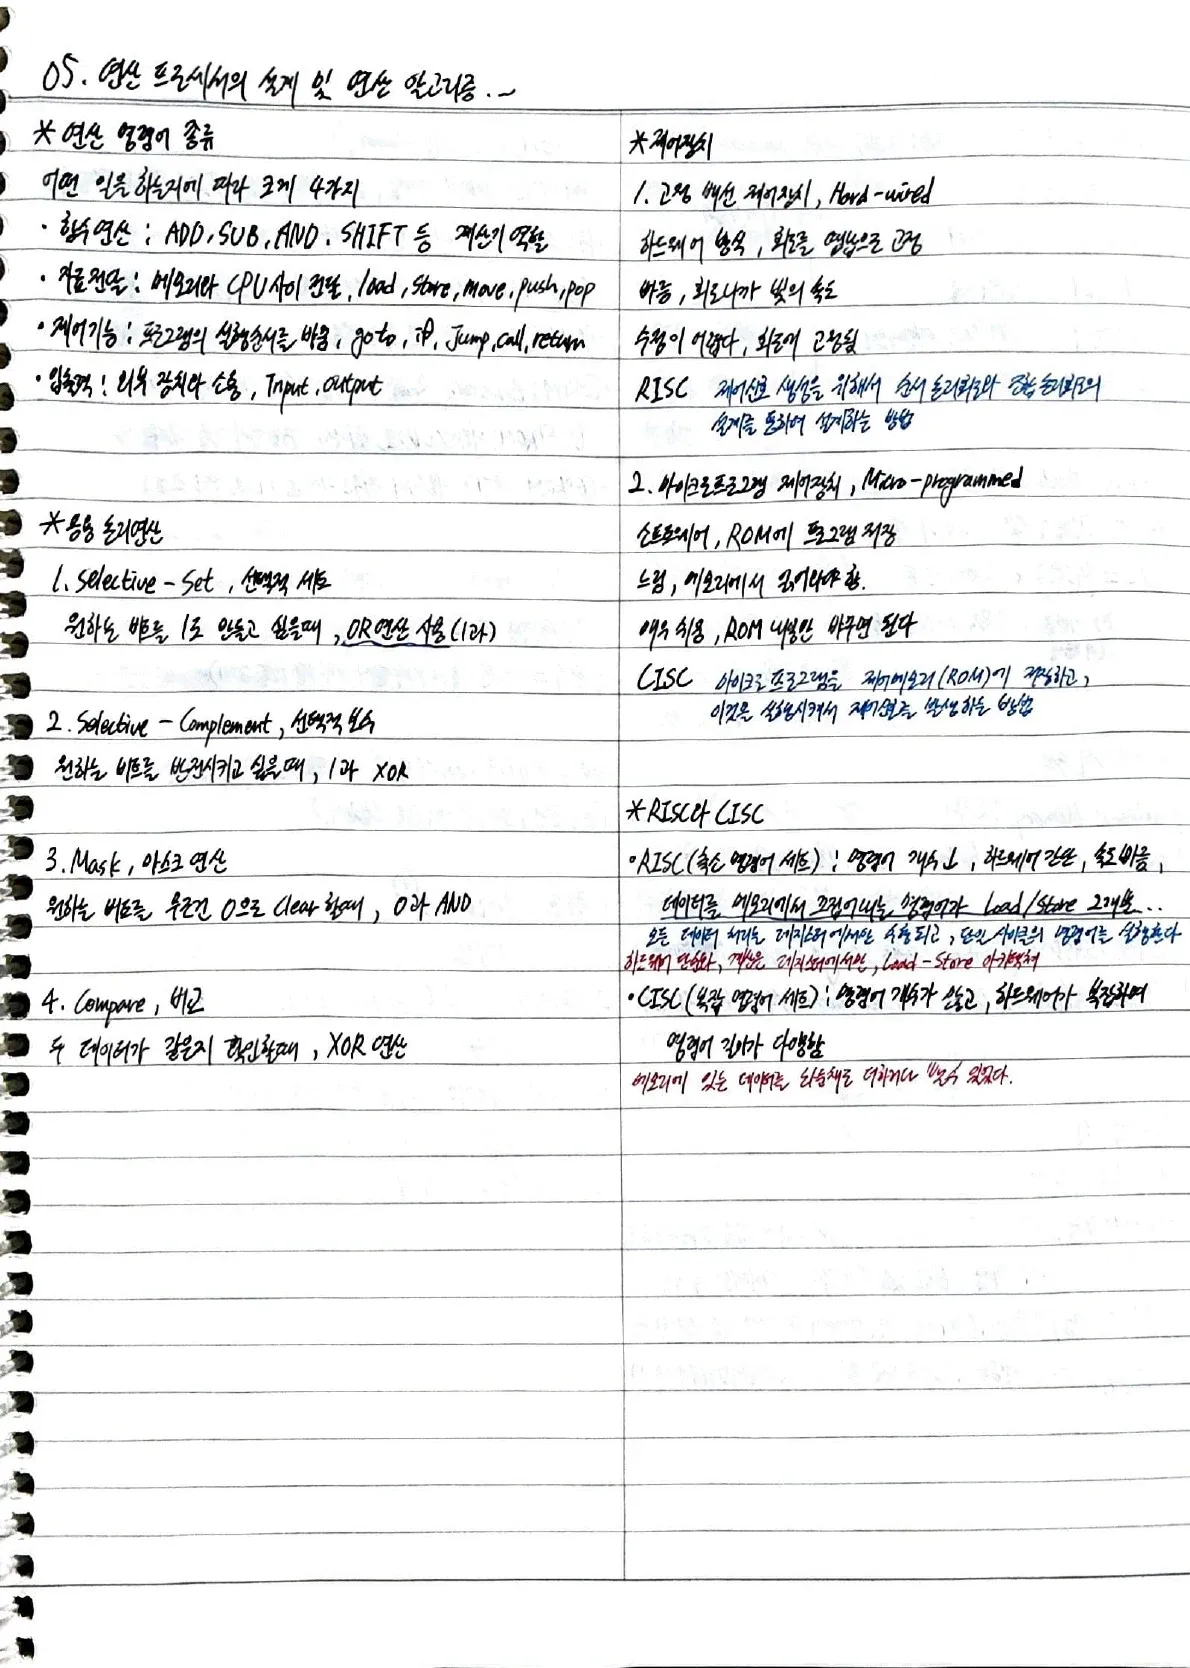 05. 연산 프로세서의 설계 및 연산 알고리즘.~
* 연산 명령어 종류
어떤 일을 하는지에 따라 크게 4가지
· 함수연산 : ADD, SUB, AND, SHIFT 등 계산기 역할
· 자료전달 : 메모리와 CPU사이 전달, load, store, move, push, pop
· 제어기능 : 프로그램의 실행순서를 바꿈, goto, if, Jump, call, return
· 입출력 : 외부 장치와 소통, Input, output
* 응용 논리연산
1. Selective-Set, 선택적 세트
원하는 비트를 1로 만들고 싶을때, OR연산 사용(1과)
2. Selective - Complement, 선택적 보수
원하는 비트를 반전시키고 싶을때, 1과 XOR
3. Mask, 마스크 연산
원하는 비트를 무조건 0으로 Clear할때, 0과 AND
4. Compare, 비교
두 데이터가 같은지 확인할때, XOR 연산
* 제어장치
1. 고정 배선 제어장치, Hard-wired
하드웨어 방식, 회로를 납땜으로 고정
빠름, 회로니까 빛의 속도
수정이 어렵다, 회로에 고정됨
RISC 제어신호 생성을 위해서 순서 논리회로와 조합 논리회로의
설계를 통하여 설계하는 방법
2. 마이크로프로그램 제어장치, Micro-programmed
소프트웨어, ROM에 프로그램 저장
느림, 메모리에서 읽어와야 함.
매우 쉬움, ROM 내용만 바꾸면 된다
CISC 마이크로 프로그램을 제어메모리(ROM)에 저장하고,
이것을 실행시켜서 제어신호를 발생하는 방법
* RISC와 CISC
· RISC(축소 명령어 세트) : 명령어 개수 ↓, 하드웨어 간단, 속도빠름,
데이터를 메모리에서 끄집어내는 명령어가 Load/Store 2개뿐...
모든 데이터 처리는 레지스터에서만 수행되고, 단일 사이클의 명령어를 실행한다
하드웨어 단순화, 계산은 레지스터에서만, Load-Store 아키텍쳐
· CISC(복잡 명령어 세트) : 명령어 개수가 많고, 하드웨어가 복잡하여
명령어 길이가 다양함
메모리에 있는 데이터를 더하거나 뺄수 있었다.